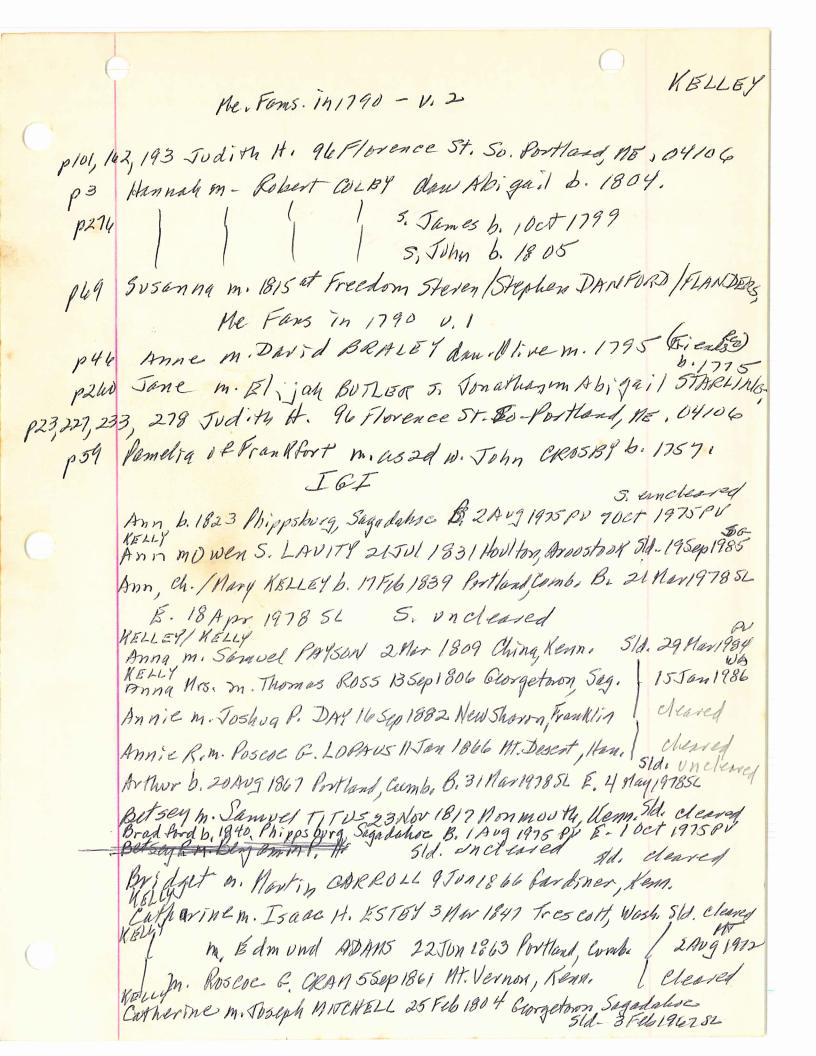 KELLEY
Me. Fams. in 1790 - v. 2
p101, 162, 193 Judith H. 96 Florence St. So. Portland, ME, 04106
p3 Hannah m- Robert COLBY dau Abigail b. 1804.
p276 s. James b. 1 Oct 1799
s, John b. 1805
p69 Susanna m. 1815 at Freedom Steven/Stephen DANFORD/FLANDERS,
Me Fams in 1790 v. 1
p46 Anne m. David BRALEY dau. Olive m. 1795 (Friends Rec)
b. 1775
p260 Jane m. Elijah BUTLER s. Jonathan m Abigail STARLING.
p23, 227, 233, 278 Judith H. 96 Florence St. So-Portland, ME, 04106
p59 Pamelia of Frankfort m. as 2d w. John CROSBY b. 1757.
IGI
S. uncleared
Ann b. 1823 Phippsburg, Sagadahoc B. 2 Aug 1975 PV 7 Oct 1975 PV
KELLY
Ann m Owen S. LAVITY 21 Jul 1831 Houlton, Aroostook Sld. 19 Sep 1985
Ann, ch./Mary KELLEY b. 17 Feb 1839 Portland, Cumb. B. 21 Mar 1978 SL
E. 18 Apr 1978 SL S. uncleared
KELLEY/KELLY PV
Anna m. Samuel PAYSON 2 Mar 1809 China, Kenn. Sld. 29 Mar 1984
KELLY WA
Anna Mrs. m. Thomas ROSS 13 Sep 1806 Georgetown, Sag. 15 Jan 1986
Annie m. Joshua P. DAY 16 Sep 1882 New Sharon, Franklin cleared
Annie R. m. Roscoe G. LOPAUS 11 Jan 1866 Mt. Desert, Han. cleared
Sld. uncleared
Arthur b. 20 Aug 1867 Portland, Cumb. B. 31 Mar 1978 SL E. 4 May 1978 SL
Betsey m. Samuel TITUS 23 Nov 1817 Monmouth, Kenn. Sld. cleared
Bradford b. 1840, Phippsburg, Sagadahoc B. 1 Aug 1975 PV E- 1 Oct 1975 PV
Sld. uncleared Sld. cleared
Bridget m. Martin CARROLL 9 Jun 1866 Gardiner, Kenn.
KELLY
Catharine m. Isaac H. ESTEY 3 Mar 1847 Trescott, Wash. Sld. cleared
KELLY
m, Edmund ADAMS 22 Jun 1863 Portland, Cumb. 2 Aug 1972
m. Roscoe G. CRAM 5 Sep 1861 Mt. Vernon, Kenn. cleared
KELLY
Catherine m. Joseph MITCHELL 25 Feb 1804 Georgetown, Sagadahoc
Sld- 3 Feb 1962 SL